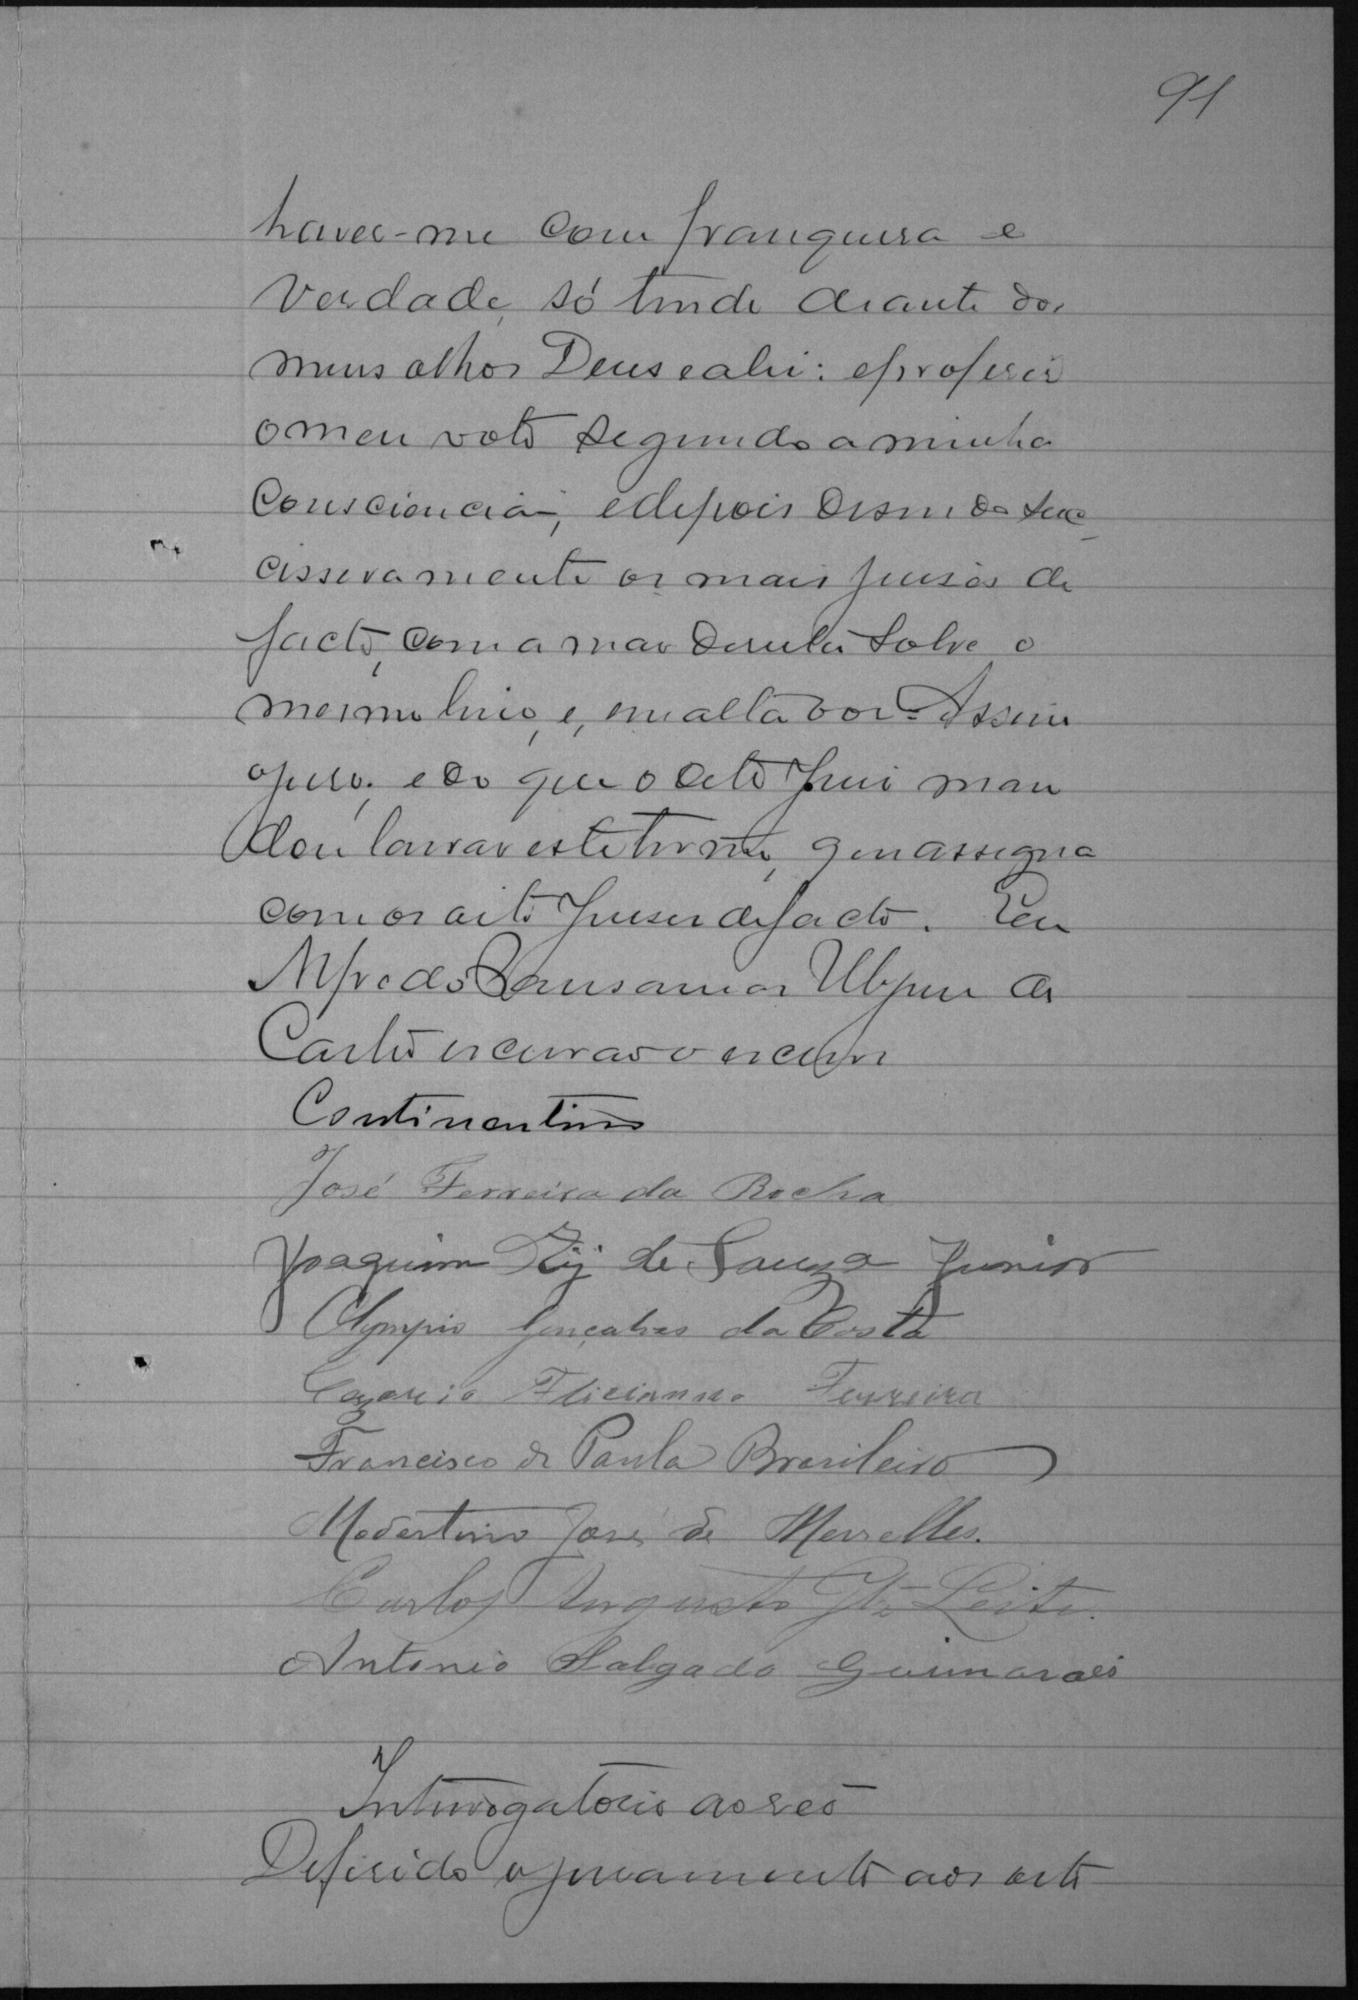 91
haver-me com franquesa e
verdade, só tendo deante dos
meus olhos Deus e a lei: e proferir
o meu voto segundo a minha
consciencia; e depois disendo suc-
cissivamente os mais juises de
facto, com a mão direita sobre o
mesmo livro, e, em alta voz = Assim
o juro; e do que o dito Juiz man
dou lavrar este termo, que assigna
com os oito Juises de facto. Eu
Alfredo de
Castro escrivão o escrevi
Continentino
José Ferreira da Rocha
Joaquim de Souza Junior
Olympio Gonçalves da Costa
Cezario Felicianno Ferreira
Francisco de Paula Brasileiro
Modestino José de Meirelles.
Carlos Augusto Leite.
Antonio Salgado Guimarães
Interrogatorio ao reo
Deferido o juramento aos oito